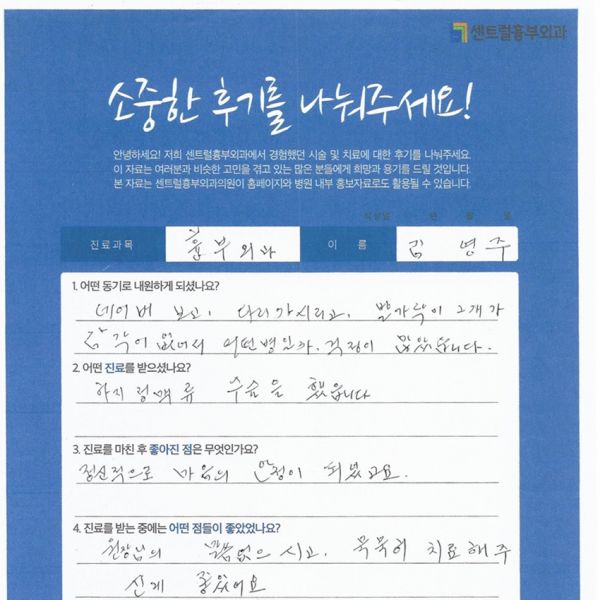 센트럴흉부외과
소중한 후기를 나눠주세요!
안녕하세요! 저희 센트럴흉부외과에서 경험했던 시술 및 치료에 대한 후기를 나눠주세요.
이 자료는 여러분과 비슷한 고민을 겪고 있는 많은 분들에게 희망과 용기를 드릴 것입니다.
본 자료는 센트럴흉부외과의원이 홈페이지와 병원 내부 홍보자료로도 활용될 수 있습니다.
작성일 년 월 일
진료과목 흉부외과 이 름 김영주
1. 어떤 동기로 내원하게 되셨나요?
네이버 보고, 다리가 시리고, 발가락이 2개가
감각이 없어서 어떤병인가, 걱정이 많았습니다.
2. 어떤 진료를 받으셨나요?
하지정맥류 수술을 했읍니다
3. 진료를 마친 후 좋아진 점은 무엇인가요?
정신적으로 마음의 안정이 되었고요.
4. 진료를 받는 중에는 어떤 점들이 좋았었나요?
원장님의 말씀없으시고, 묵묵히 치료해주
신게 좋았어요